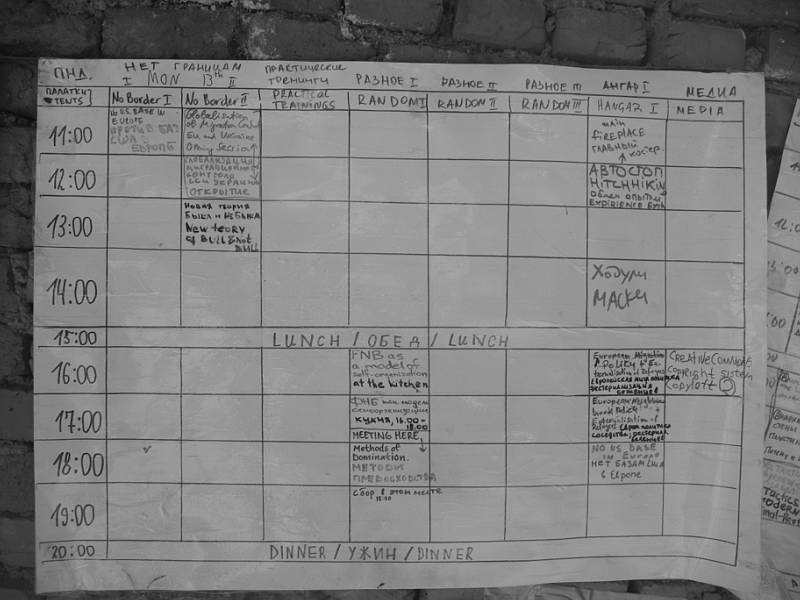 ПНД. НЕТ ГРАНИЦАМ ПРАКТИЧЕСКИЕ ТРЕНИНГИ РАЗНОЕ I РАЗНОЕ II РАЗНОЕ III АНГАР I МЕДИА
I MON 13th II
ПАЛАТКИ TENTS No Border I No Border II PRACTICAL TRAININGS RANDOM I RANDOM II RANDOM III HANGAR I MEDIA
11:00
NO US BASE IN
EUROPE
ПРОТИВ БАЗ
США В
ЕВРОПЕ
Globalisation
of Migration Control
EU and Ukraine
Opening Session
MAIN
FIREPLACE
ГЛАВНЫЙ
КОСТЕР.
12:00
ГЛОБАЛИЗАЦИЯ
МИГРАЦИОННОГО
КОНТРОЛЯ
УКРАИНА
ОТКРЫТИЕ
АВТОСТОП
HITCHHIKING
Обмен опытом
EXPERIENCE
13:00
НОВАЯ ТЕОРИЯ
БЫКА И НЕБЫКА
New teory
of BULL & not
BULL
14:00
Ходули
МАСКИ
15:00 LUNCH / ОБЕД / LUNCH
16:00
FNB as
a model of
self-organization
at the kitchen
European Migration
Policy +
CREATIVE COMMONS
COPYRIGHT system
Copyleft
17:00
ФНБ как модель
самоорганизации
КУХНЯ, 16.00-
18.00
MEETING HERE,
European
Policy +
18:00
Methods of
Domination.
МЕТОДЫ
ПРЕВОСХОДСТВА
NO US BASE
in Europe
НЕТ БАЗАМ США
в Европе
19:00
Сбор в этом месте
20:00 DINNER / УЖИН / DINNER